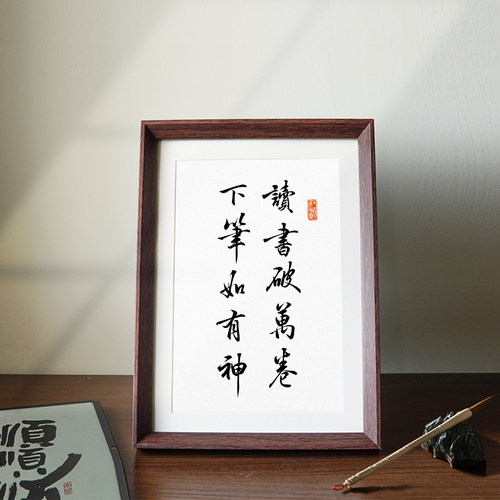 讀書破萬卷
下筆如有神
順
順